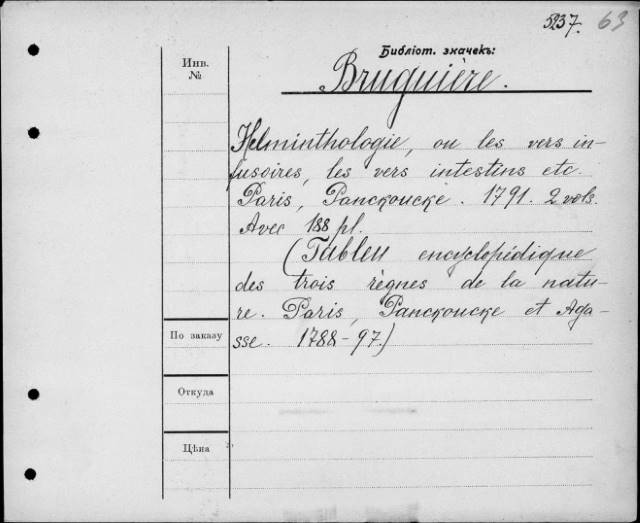 5237. 63
Библіот. значекъ:
Инв.
№
Bruguière.
Helminthologie, ou les vers in-
fusoires, les vers intestins etc.
Paris, Panckoucke. 1791. 2 vols.
Avec 188 pl.
(Tableu encyclopédique
des trois règnes de la natu-
re. Paris, Panckoucke et Aga-
sse. 1788-97.)
По заказу
Откуда
Цѣна